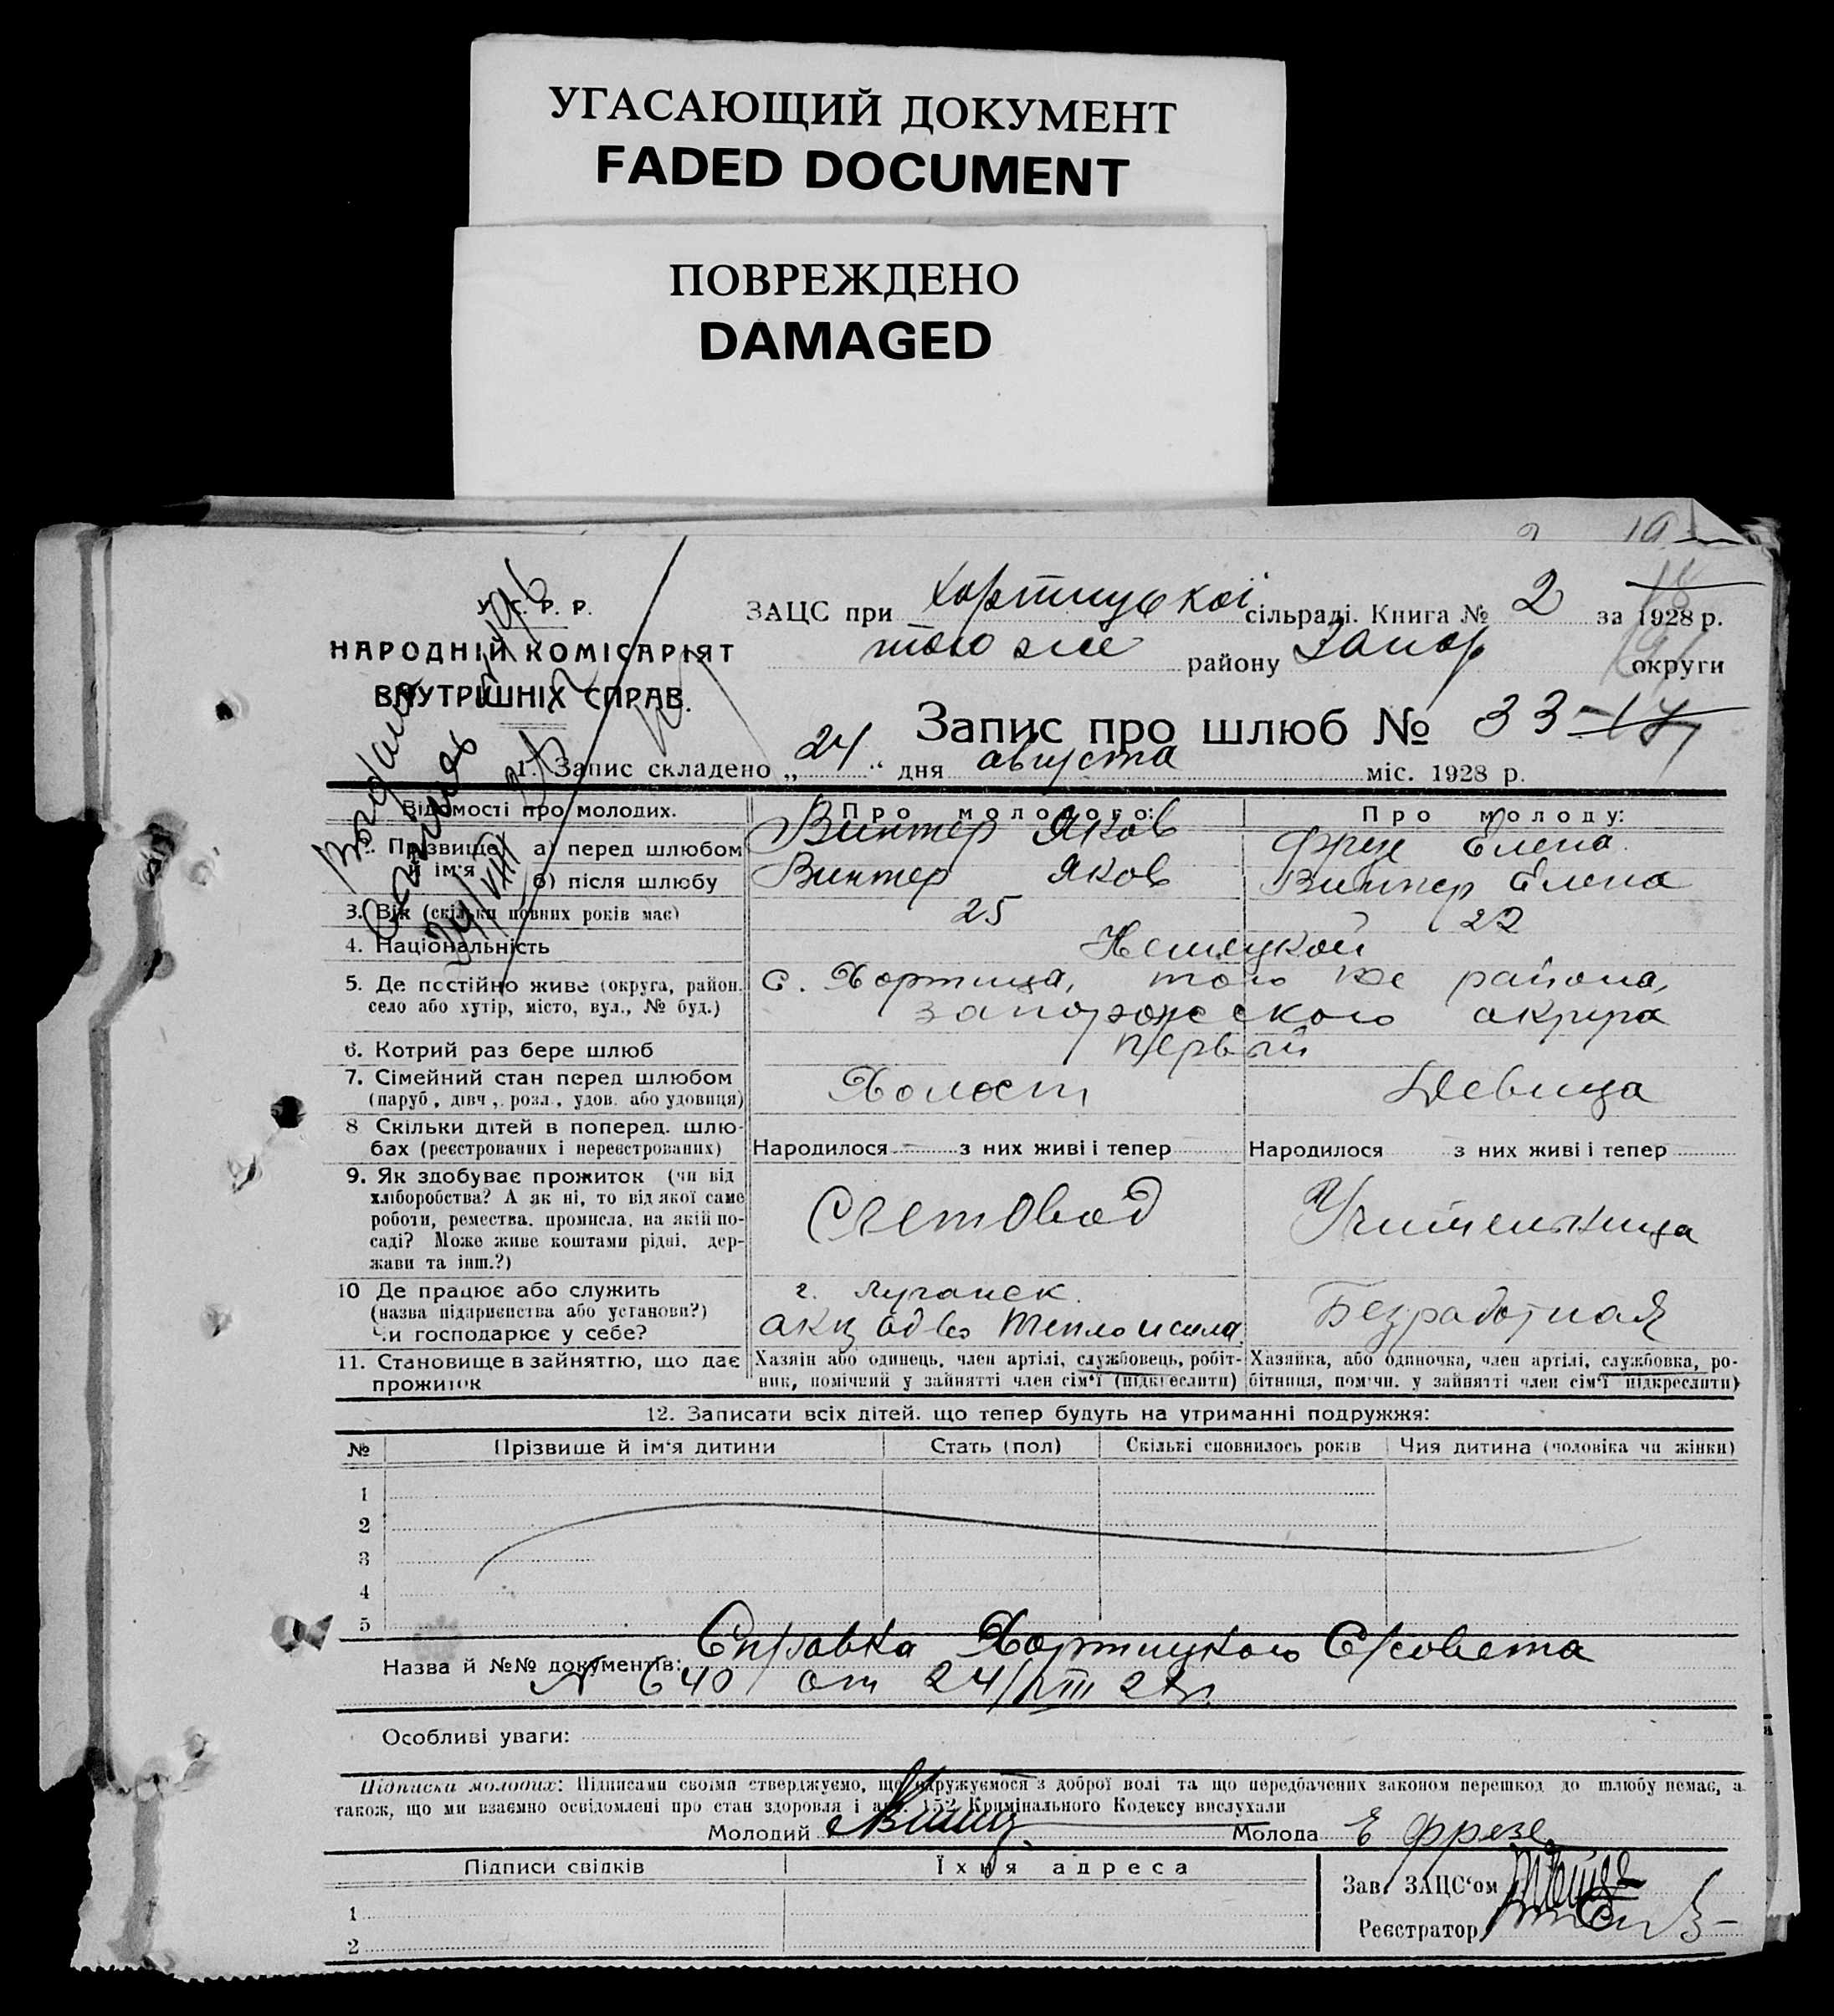 УГАСАЮЩИЙ ДОКУМЕНТ
FADED DOCUMENT
ПОВРЕЖДЕНО
DAMAGED
У. С. Р. Р.
НАРОДНІЙ КОМІСАРІЯТ
ВНУТРІШНІХ СПРАВ.
Выдана
ЗАЦС при Хортицькоі сільраді. Книга № 2 за 1928 р.
того же району Запор округи
Запис про шлюб № 33
1. Запис складено „24“ дня августа міс. 1928 р.
Відомості про молодих. Про молодого: Про молоду:
2. Прізвище й ім'я а) перед шлюбом Винтер Яков Фрезе Елена
б) після шлюбу Винтер Яков Винтер Елена
3. Вік (скільки повних років має) 25 22
4. Національність Немецкой
5. Де постійно живе (округа, район, село або хутір, місто, вул., № буд.) с. Хортица, того же района,
запорожского округа
6. Котрий раз бере шлюб первый
7. Сімейний стан перед шлюбом Холост Девица
(паруб., дівч., розл., удов. або удовиця)
8 Скільки дітей в поперед. шлю-
бах (реєстрованих і нереєстрованих) Народилося з них живі і тепер Народилося з них живі і тепер
9. Як здобуває прожиток (чи від
хліборобства? А як ні, то від якої саме
роботи, ремества, промисла, на якій по-
саді? Може живе коштами рідні, дер-
жави та інш.?) Счетовод Учительница
10 Де працює або служить г. Луганск.
(назва підприємства або установи?) акц о-во Тепло и сила Безработная
Чи господарює у себе?
11. Становище в зайняттю, що дає прожиток
Хазяїн або одинець, член артілі, службовець, робіт-
ник, помічний у зайнятті член сім'ї (підкреслити)
Хазяйка, або одиночка, член артілі, службовка, ро-
бітниця, помічн. у зайнятті член сім'ї підкреслити)
12. Записати всіх дітей, що тепер будуть на утриманні подружжя:
№ Прізвище й ім'я дитини Стать (пол) Скількі сповнилось років Чия дитина (чоловіка чи жінки)
1
2
3
4
5
Назва й №№ документів: Справка Хортицкого С/совета
№ 640 от 24/VIII 28г.
Особливі уваги:
Підписка молодих: Підписами своїми стверджуємо, що одружуємося з доброї волі та що передбачених законом перешкод до шлюбу немає, а
також, що ми взаємно освідомлені про стан здоровля і арт. 152 Кримінального Кодексу вислухали
Молодий Молода Е Фрезе
Підписи свідків Їхня адреса
Зав. ЗАЦС'ом
Реєстратор
1
2